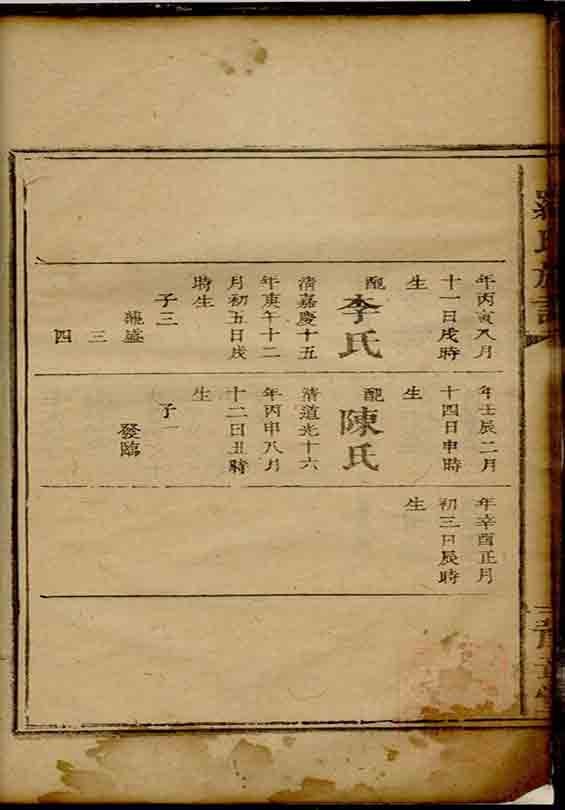 羅氏族譜
年丙寅八月
十一日戌時
生
配
李氏
清嘉慶十五
年庚午十二
月初五日戌
時生
子三
龍盛
三
四
年壬辰二月
十四日申時
生
配
陳氏
清道光十六
年丙申八月
十二日丑時
生
子一
發臨
年辛酉正月
初三日辰時
生